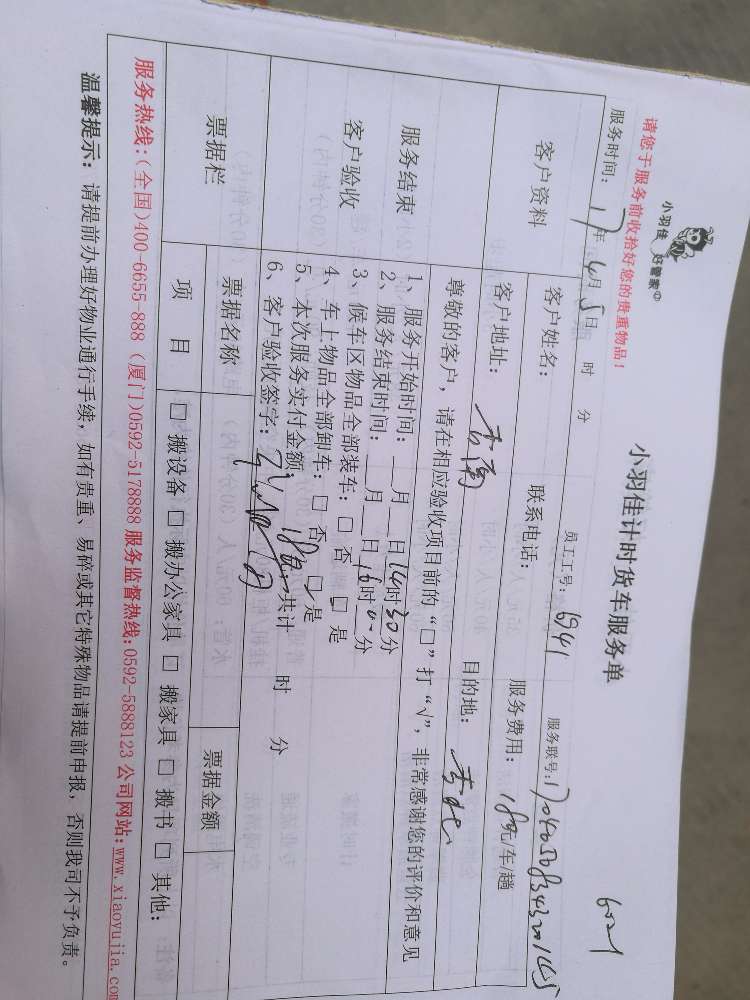 小羽佳 好管家
6021
小羽佳计时货车服务单
请您于服务前收拾好您的贵重物品！
服务时间：17年4月5日 时 分 员工工号：6941 服务联号：
客户资料
客户姓名： 联系电话： 服务费用： 元/车/趟
客户地址： 目的地：
服务结束
客户验收
尊敬的客户，请在相应验收项目前的“□”打“√”，非常感谢您的评价和意见
1、服务开始时间：__月__日14时30分
2、服务结束时间：__月__日16时00分
3、候车区物品全部装车：□ 否 □ 是
4、车上物品全部卸车：□ 否 □ 是
5、本次服务实付金额： 共计 时 分
6、客户验收签字：
票据栏
票据名称 票据金额
项 目 □ 搬设备 □ 搬办公家具 □ 搬家具 □ 搬书 □ 其他：
服务热线：（全国）400-6655-888（厦门）0592-5178888 服务监督热线：0592-5888123 公司网站：www.xiaoyujia.com
温馨提示：请提前办理好物业通行手续，如有贵重、易碎或其它特殊物品请提前申报，否则我司不予负责。